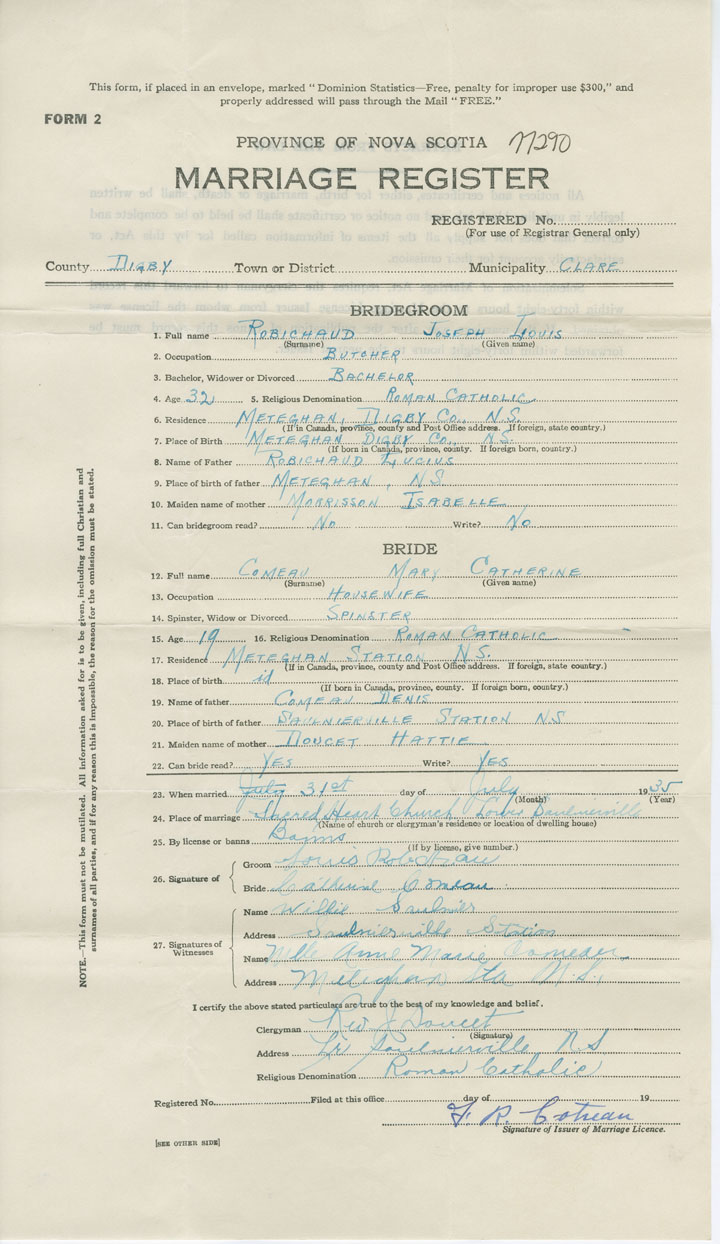 This form, if placed in an envelope, marked "Dominion Statistics—Free, penalty for improper use $300," and
properly addressed will pass through the Mail "FREE."
FORM 2
PROVINCE OF NOVA SCOTIA 77290
MARRIAGE REGISTER
REGISTERED No.
(For use of Registrar General only)
County DIGBY Town or District Municipality CLARE
BRIDEGROOM
1. Full name ROBICHAUD JOSEPH LOUIS
(Surname) (Given name)
2. Occupation BUTCHER
3. Bachelor, Widower or Divorced BACHELOR
4. Age 32 5. Religious Denomination ROMAN CATHOLIC
6. Residence METEGHAN, DIGBY CO., N.S.
(If in Canada, province, county and Post Office address. If foreign, state country.)
7. Place of Birth METEGHAN DIGBY CO., N.S.
(If born in Canada, province, county. If foreign born, country.)
8. Name of Father ROBICHAUD LUCIUS
9. Place of birth of father METEGHAN, N.S
10. Maiden name of mother MORRISSON ISABELLE
11. Can bridegroom read? No Write? No
BRIDE
12. Full name COMEAU MARY CATHERINE
(Surname) (Given name)
13. Occupation HOUSEWIFE
14. Spinster, Widow or Divorced SPINSTER
15. Age 19 16. Religious Denomination ROMAN CATHOLIC
17. Residence METEGHAN STATION N.S.
(If in Canada, province, county and Post Office address. If foreign, state country.)
18. Place of birth id
(If born in Canada, province, county. If foreign born, country.)
19. Name of father COMEAU DENIS
20. Place of birth of father SAULNIERVILLE STATION NS
21. Maiden name of mother DOUCET HATTIE
22. Can bride read? YES Write? YES
23. When married July 31st day of July 1935
(Month) (Year)
24. Place of marriage Sacred Heart Church Saulnierville
(Name of church or clergyman's residence or location of dwelling house)
25. By license or banns Banns
(If by license, give number.)
26. Signature of
Groom
Bride Catherine Comeau
27. Signatures of Witnesses
Name Willie Saulnier
Address Saulnierville Station
Name Mlle Anne Marie Comeau
Address Meteghan Sta N.S.,
I certify the above stated particulars are true to the best of my knowledge and belief.
Clergyman Rev J Doucet
(Signature)
Address Saulnierville N.S
Religious Denomination Roman Catholic
Registered No. Filed at this office day of 19
F. R. Comeau
Signature of Issuer of Marriage Licence.
[SEE OTHER SIDE]
NOTE.—This form must not be mutilated. All information asked for is to be given, including full Christian and
surnames of all parties, and if for any reason this is impossible, the reason for the omission must be stated.